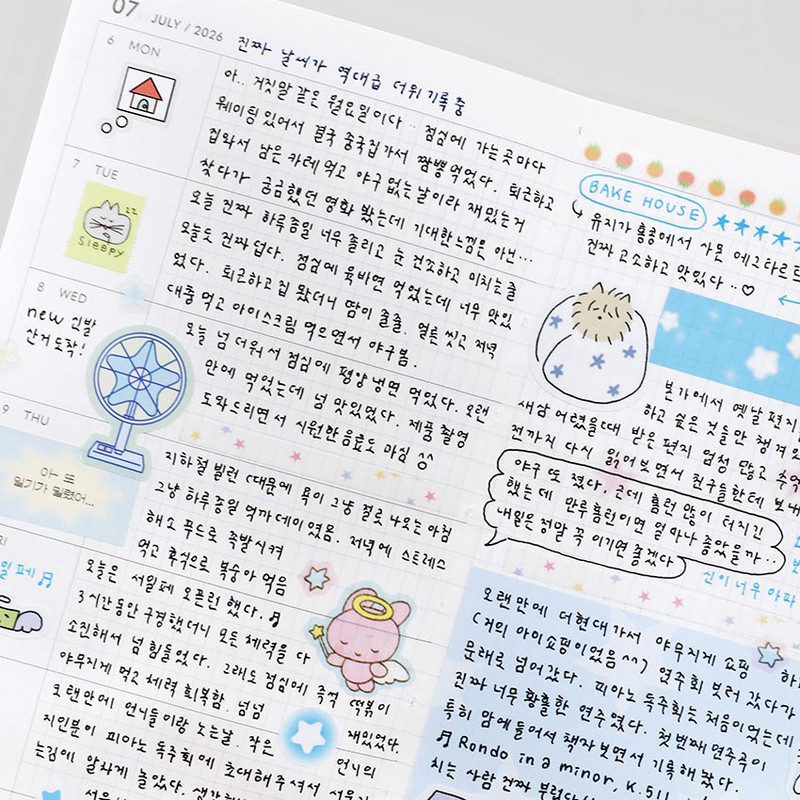 07 JULY / 2026
진짜 날씨가 역대급 더위 기록 중
6 MON
아.. 거짓말 같은 월요일이다.. 점심에 가는 곳마다
웨이팅 있어서 결국 중국집 가서 짬뽕 먹었다. 퇴근하고
집와서 남은 카레 먹고 야구 없는 날이라 재밌는거
찾다가 궁금했던 영화 봤는데 기대한 느낌은 아닌...
7 TUE
zz
Sleepy
오늘 진짜 하루종일 너무 졸리고 눈 건조하고 미치는 줄
오늘도 진짜 덥다. 점심에 육바연 먹었는데 너무 맛있
었다. 퇴근하고 집 왔더니 땀이 줄줄. 얼른 씻고 저녁
대충 먹고 아이스크림 먹으면서 야구봄.
8 WED
new 신발
산거 도착!
오늘 넘 더워서 점심에 평양냉면 먹었다. 오랜
만에 먹었는데 넘 맛있었다. 제품 촬영
도와드리면서 시원한 음료도 마심 ^^
9 THU
아- 또
일기가 밀렸어...
지하철 빌런 때문에 욕이 그냥 절로 나오는 아침
그냥 하루종일 억까데이였음. 저녁에 스트레스
해소 푸드로 족발시켜
먹고 후식으로 복숭아 먹음
일페♬
오늘은 서일페 오픈런 했다.♬
3시간동안 구경했더니 모든 체력을 다
소진해서 넘 힘들었다. 그래도 점심에 즉석 떡볶이
야무지게 먹고 체력 회복함. 넘넘 재밌었다.
오랜만에 언니들이랑 노는날. 작은 언니의
지인분이 피아노 독주회에 초대해주셔서
는김에 알차게 놀았다.
BAKE HOUSE
유지가 홍콩에서 사온 에그타르트
진짜 고소하고 맛있다..♡
본가에서 옛날 편지
하고 싶은 것들만 챙겨
새삼 어렸을때 받은 편지 엄청 많고
전까지 다시 읽어보면서 친구들한테
야구 또 졌다. 근데 홈런 많이 터지긴
했는데 만루홈런이면 얼마나 좋았을까..
내일은 정말 꼭 이기면 좋겠다
신이 너무 아파
오랜만에 더현대 가서 야무지게 쇼핑
(거의 아이쇼핑이었음^^) 연주회 보러 갔다가
문래로 넘어갔다. 피아노 독주회는 처음이었는데
진짜 너무 황홀한 연주였다. 첫번째 연주곡이
특히 맘에 들어서 책자보면서 기록해 놨다.
♬ Rondo in a minor, K.511
치는 사람 진짜 부럽다